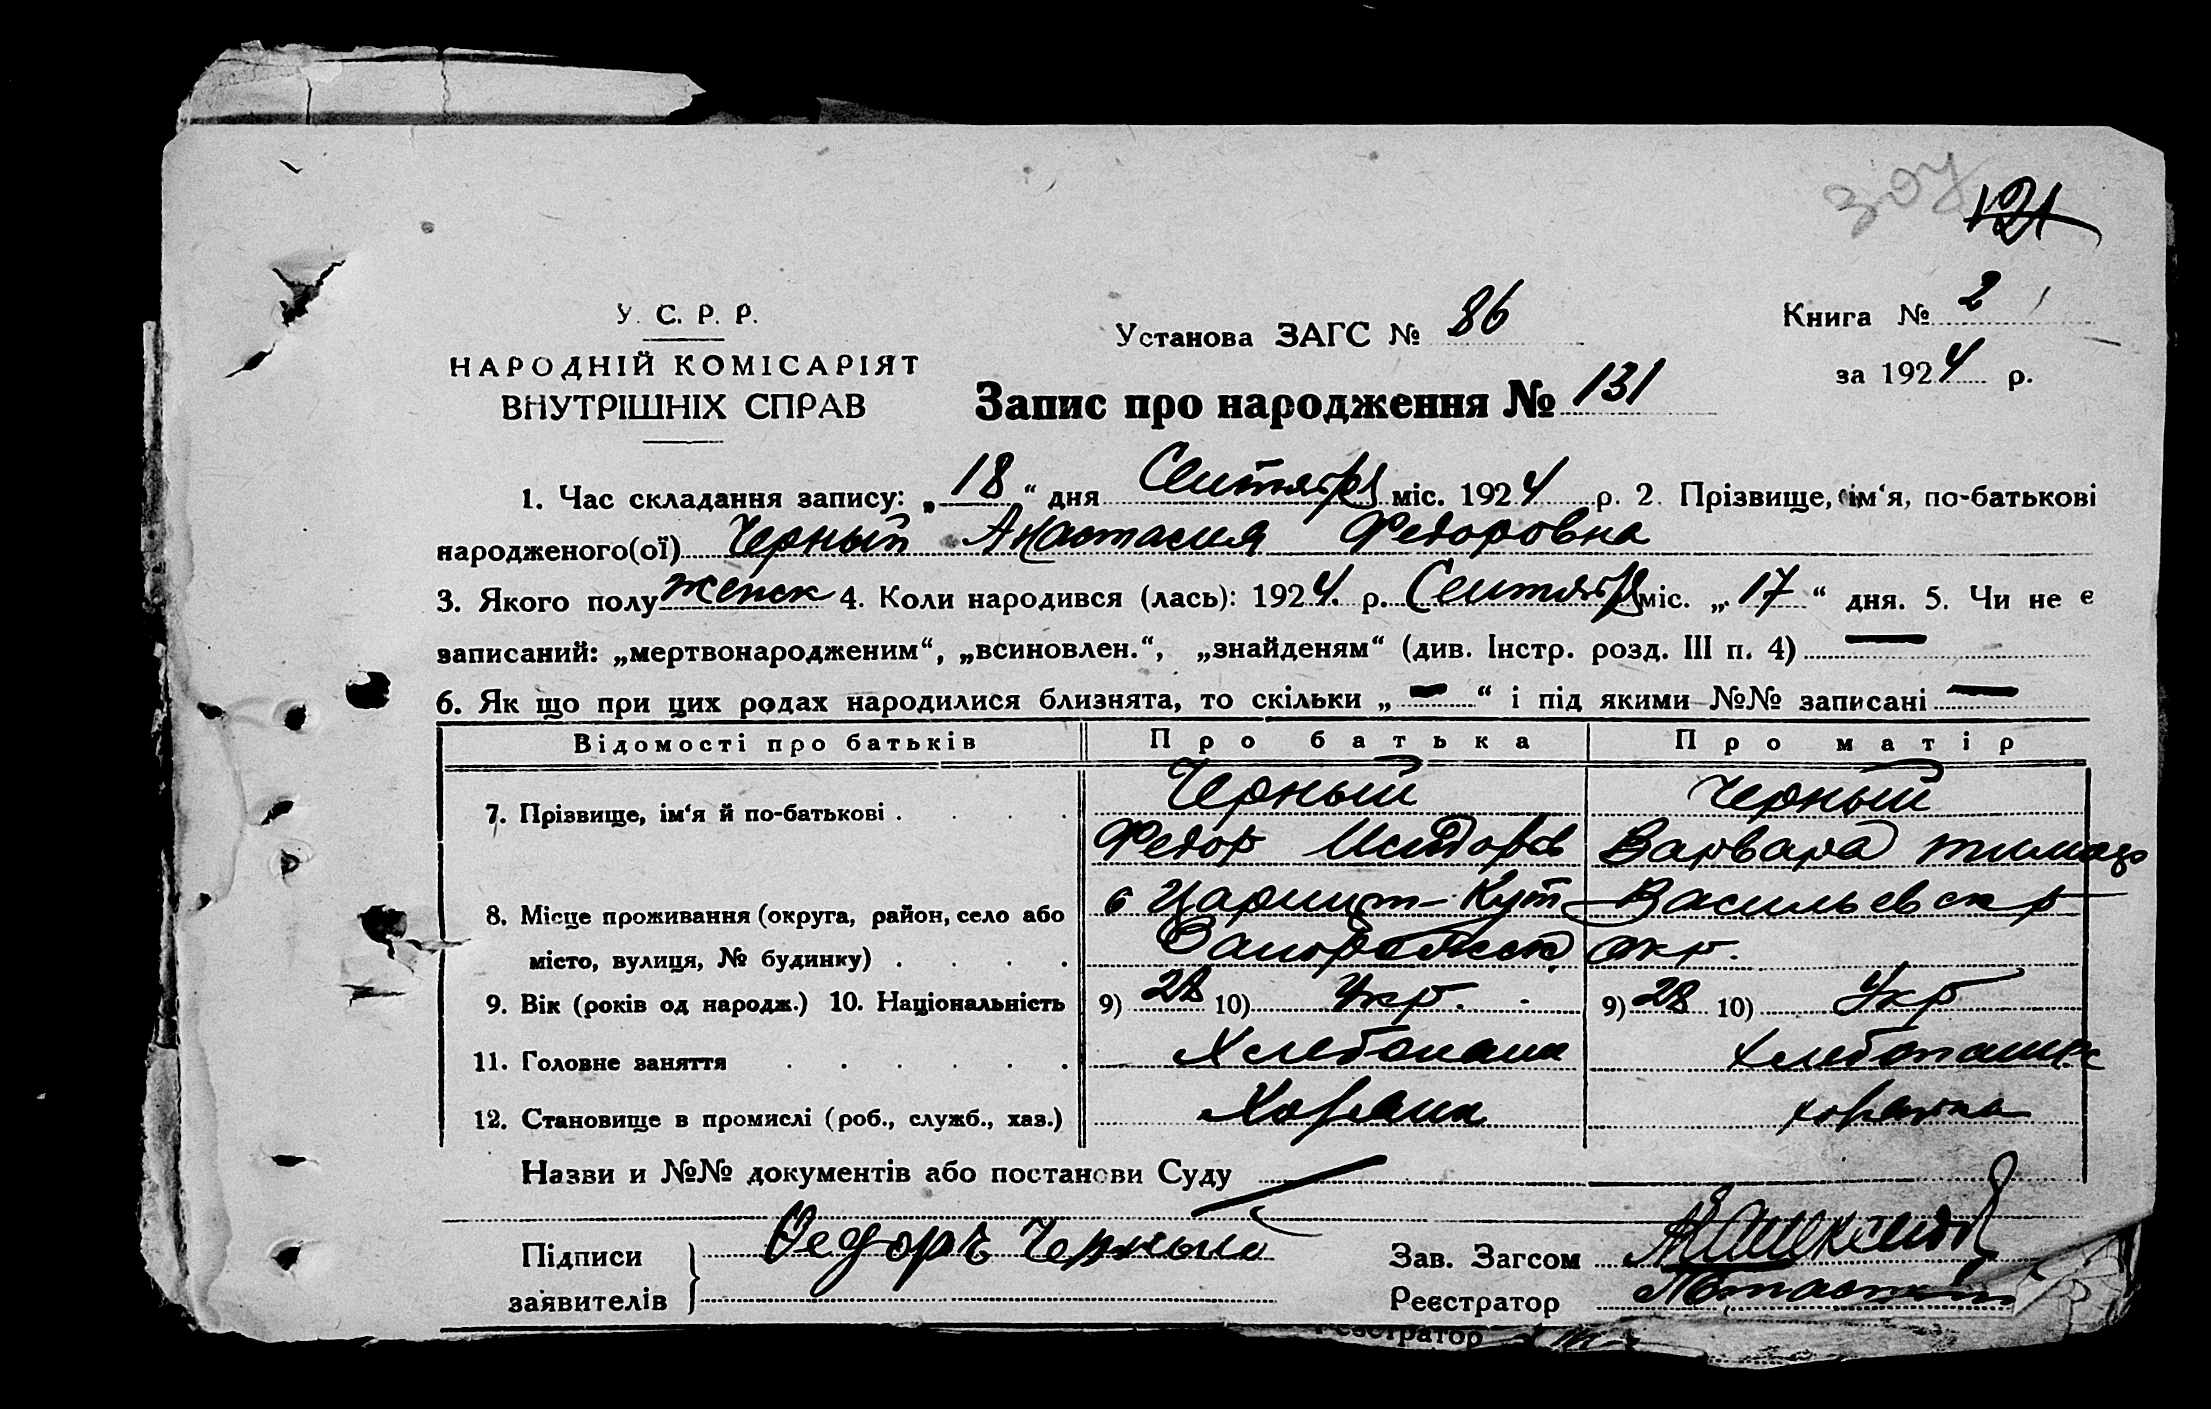 307
121
У. С. Р. Р.
НАРОДНІЙ КОМІСАРІЯТ
ВНУТРІШНІХ СПРАВ
Установа ЗАГС № 86
Книга № 2
за 1924 р.
Запис про народження № 131
1. Час складання запису: „18“ дня Сентября міс. 1924 р. 2. Прізвище, ім‘я, по-батькові
народженого(ої) Черный Анастасия Федоровна
3. Якого полу женск 4. Коли народився (лась): 1924. р. Сентября міс. „17“ дня. 5. Чи не є
записаний: „мертвонародженим“, „всиновлен.“, „знайденям“ (див. Інстр. розд. III п. 4) —
6. Як що при цих родах народилися близнята, то скільки „—“ і під якими №№ записані —
Відомості про батьків Про батька Про матір
7. Прізвище, ім‘я й по-батькові . Черный Черный
Федор Исидоров Варвара Тимоф
8. Місце проживання (округа, район, село або с Царицт-Кут Васильевск р
місто, вулиця, № будинку) Запорожск окр.
9. Вік (років од народж.) 10. Національність 9) 28 10) Укр. 9) 28 10) Укр
11. Головне заняття Хлебопаш хлебопашес
12. Становище в промислі (роб., служб., хаз.) Хозяин хозяйка
Назви и №№ документів або постанови Суду
Підписи Федоръ Черный Зав. Загсом
заявителів Реєстратор
Реєстратор